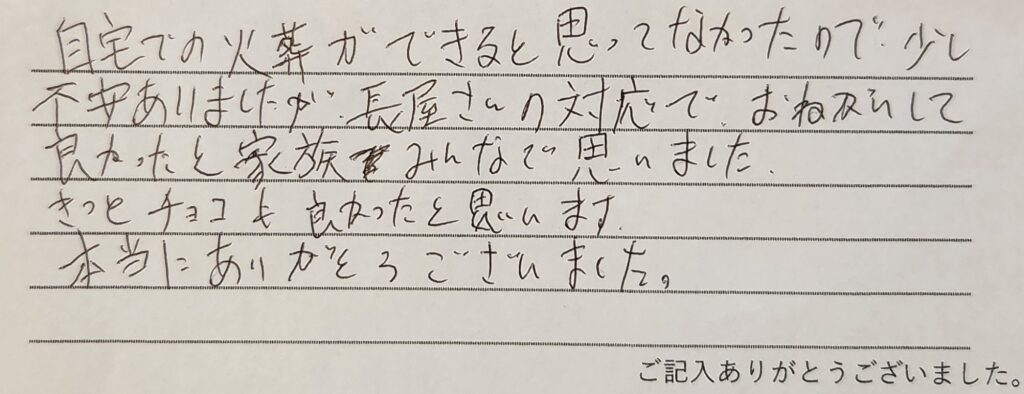 自宅での火葬ができると思ってなかったので、少し
不安ありましたが、長屋さんの対応で、おねがいして
良かったと家族みんなで思いました。
きっとチョコも良かったと思います。
本当にありがとうございました。
ご記入ありがとうございました。